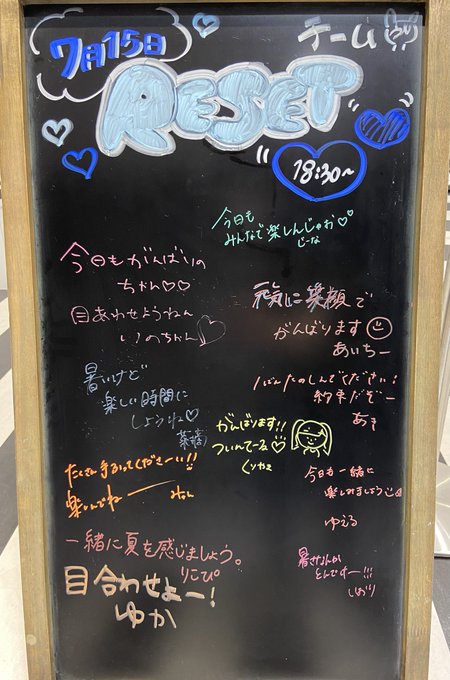 7月15日
チーム
RESET
18:30〜
今日も
みんなで楽しんじゃお♡♡
じーな
今日もがんばりの
ちゃん♡♡
目あわせようねん
いのちゃん♡
元気に笑顔で
がんばります☺
あいちー
暑いけど
楽しい時間に
しようね♡
1ばんたのしんでください!
約束だぞー
あき
がんばります!!
ついんてーる♡
くりやま
たくさん手ふってくださーい!!
楽しんでねー
今日も一緒に
楽しみましょう
ゆえる
一緒に夏を感じましょう。
りこぴ
目合わせよー!
ゆか
暑さなんか
とんでけー!!!
しおり